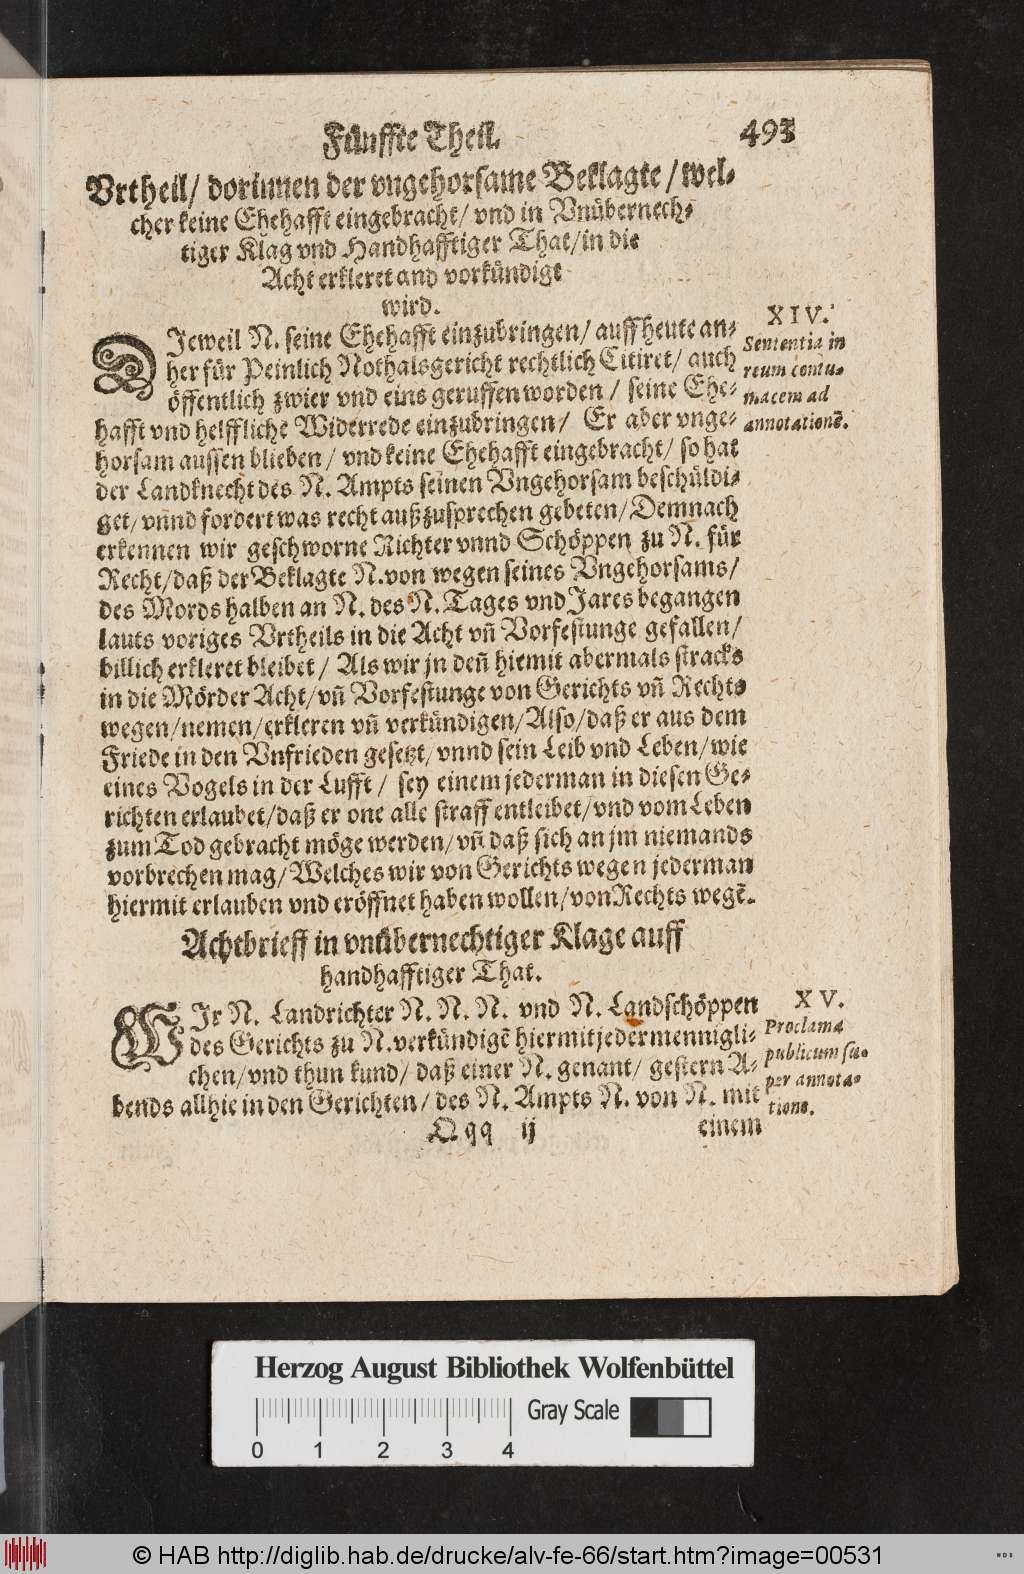 Fünffte Theil.
493
Vrtheil/ dorinnen der vngehorsame Beklagte/ wel-
cher keine Ehehafft eingebracht/ vnd in Vnübernech-
tiger Klag vnd Handhafftiger That/ in die
Acht erkleret and vorkündigt
wird.
XIV.
Sententia in
reum contu-
macem ad
annotationē.
DJeweil N. seine Ehehafft einzubringen/ auff heute an-
her für Peinlich Nothalsgericht rechtlich Citiret/ auch
öffentlich zwier vnd eins geruffen worden/ seine Ehe-
hafft vnd helffliche Widerrede einzubringen/ Er aber vnge-
horsam aussen blieben/ vnd keine Ehehafft eingebracht/ so hat
der Landknecht des N. Ampts seinen Vngehorsam beschüldi-
get/ vnnd fordert was recht außzusprechen gebeten/ Demnach
erkennen wir geschworne Richter vnnd Schöppen zu N. für
Recht/ daß der Beklagte N. von wegen seines Vngehorsams/
des Mords halben an N. des N. Tages vnd Jares begangen
lauts voriges Vrtheils in die Acht vñ Vorfestunge gefallen/
billich erkleret bleibet/ Als wir jn deñ hiemit abermals stracks
in die Mörder Acht/ vñ Vorfestunge von Gerichts vñ Rechts
wegen/ nemen/ erkleren vñ verkündigen/ Also/ daß er aus dem
Friede in den Vnfrieden gesetzt/ vnnd sein Leib vnd Leben/ wie
eines Vogels in der Lufft/ sey einem jederman in diesen Ge-
richten erlaubet/ daß er one alle straff entleibet/ vnd vom Leben
zum Tod gebracht möge werden/ vñ daß sich an jm niemands
vorbrechen mag/ Welches wir von Gerichts wegen jederman
hiermit erlauben vnd eröffnet haben wollen/ von Rechts wegē.
Achtbrieff in vnübernechtiger Klage auff
handhafftiger That.
XV.
Proclama
publicum su-
per annota-
tione.
WJr N. Landrichter N. N. N. vnd N. Landschöppen
des Gerichts zu N. verkündigē hiermit jedermennigli-
chen/ vnd thun kund/ daß einer N. genant/ gestern A-
bends allhie in den Gerichten/ des N. Ampts N. von N. mit
Qqq ij
einem
Herzog August Bibliothek Wolfenbüttel
Gray Scale
0 1 2 3 4
© HAB http://diglib.hab.de/drucke/alv-fe-66/start.htm?image=00531